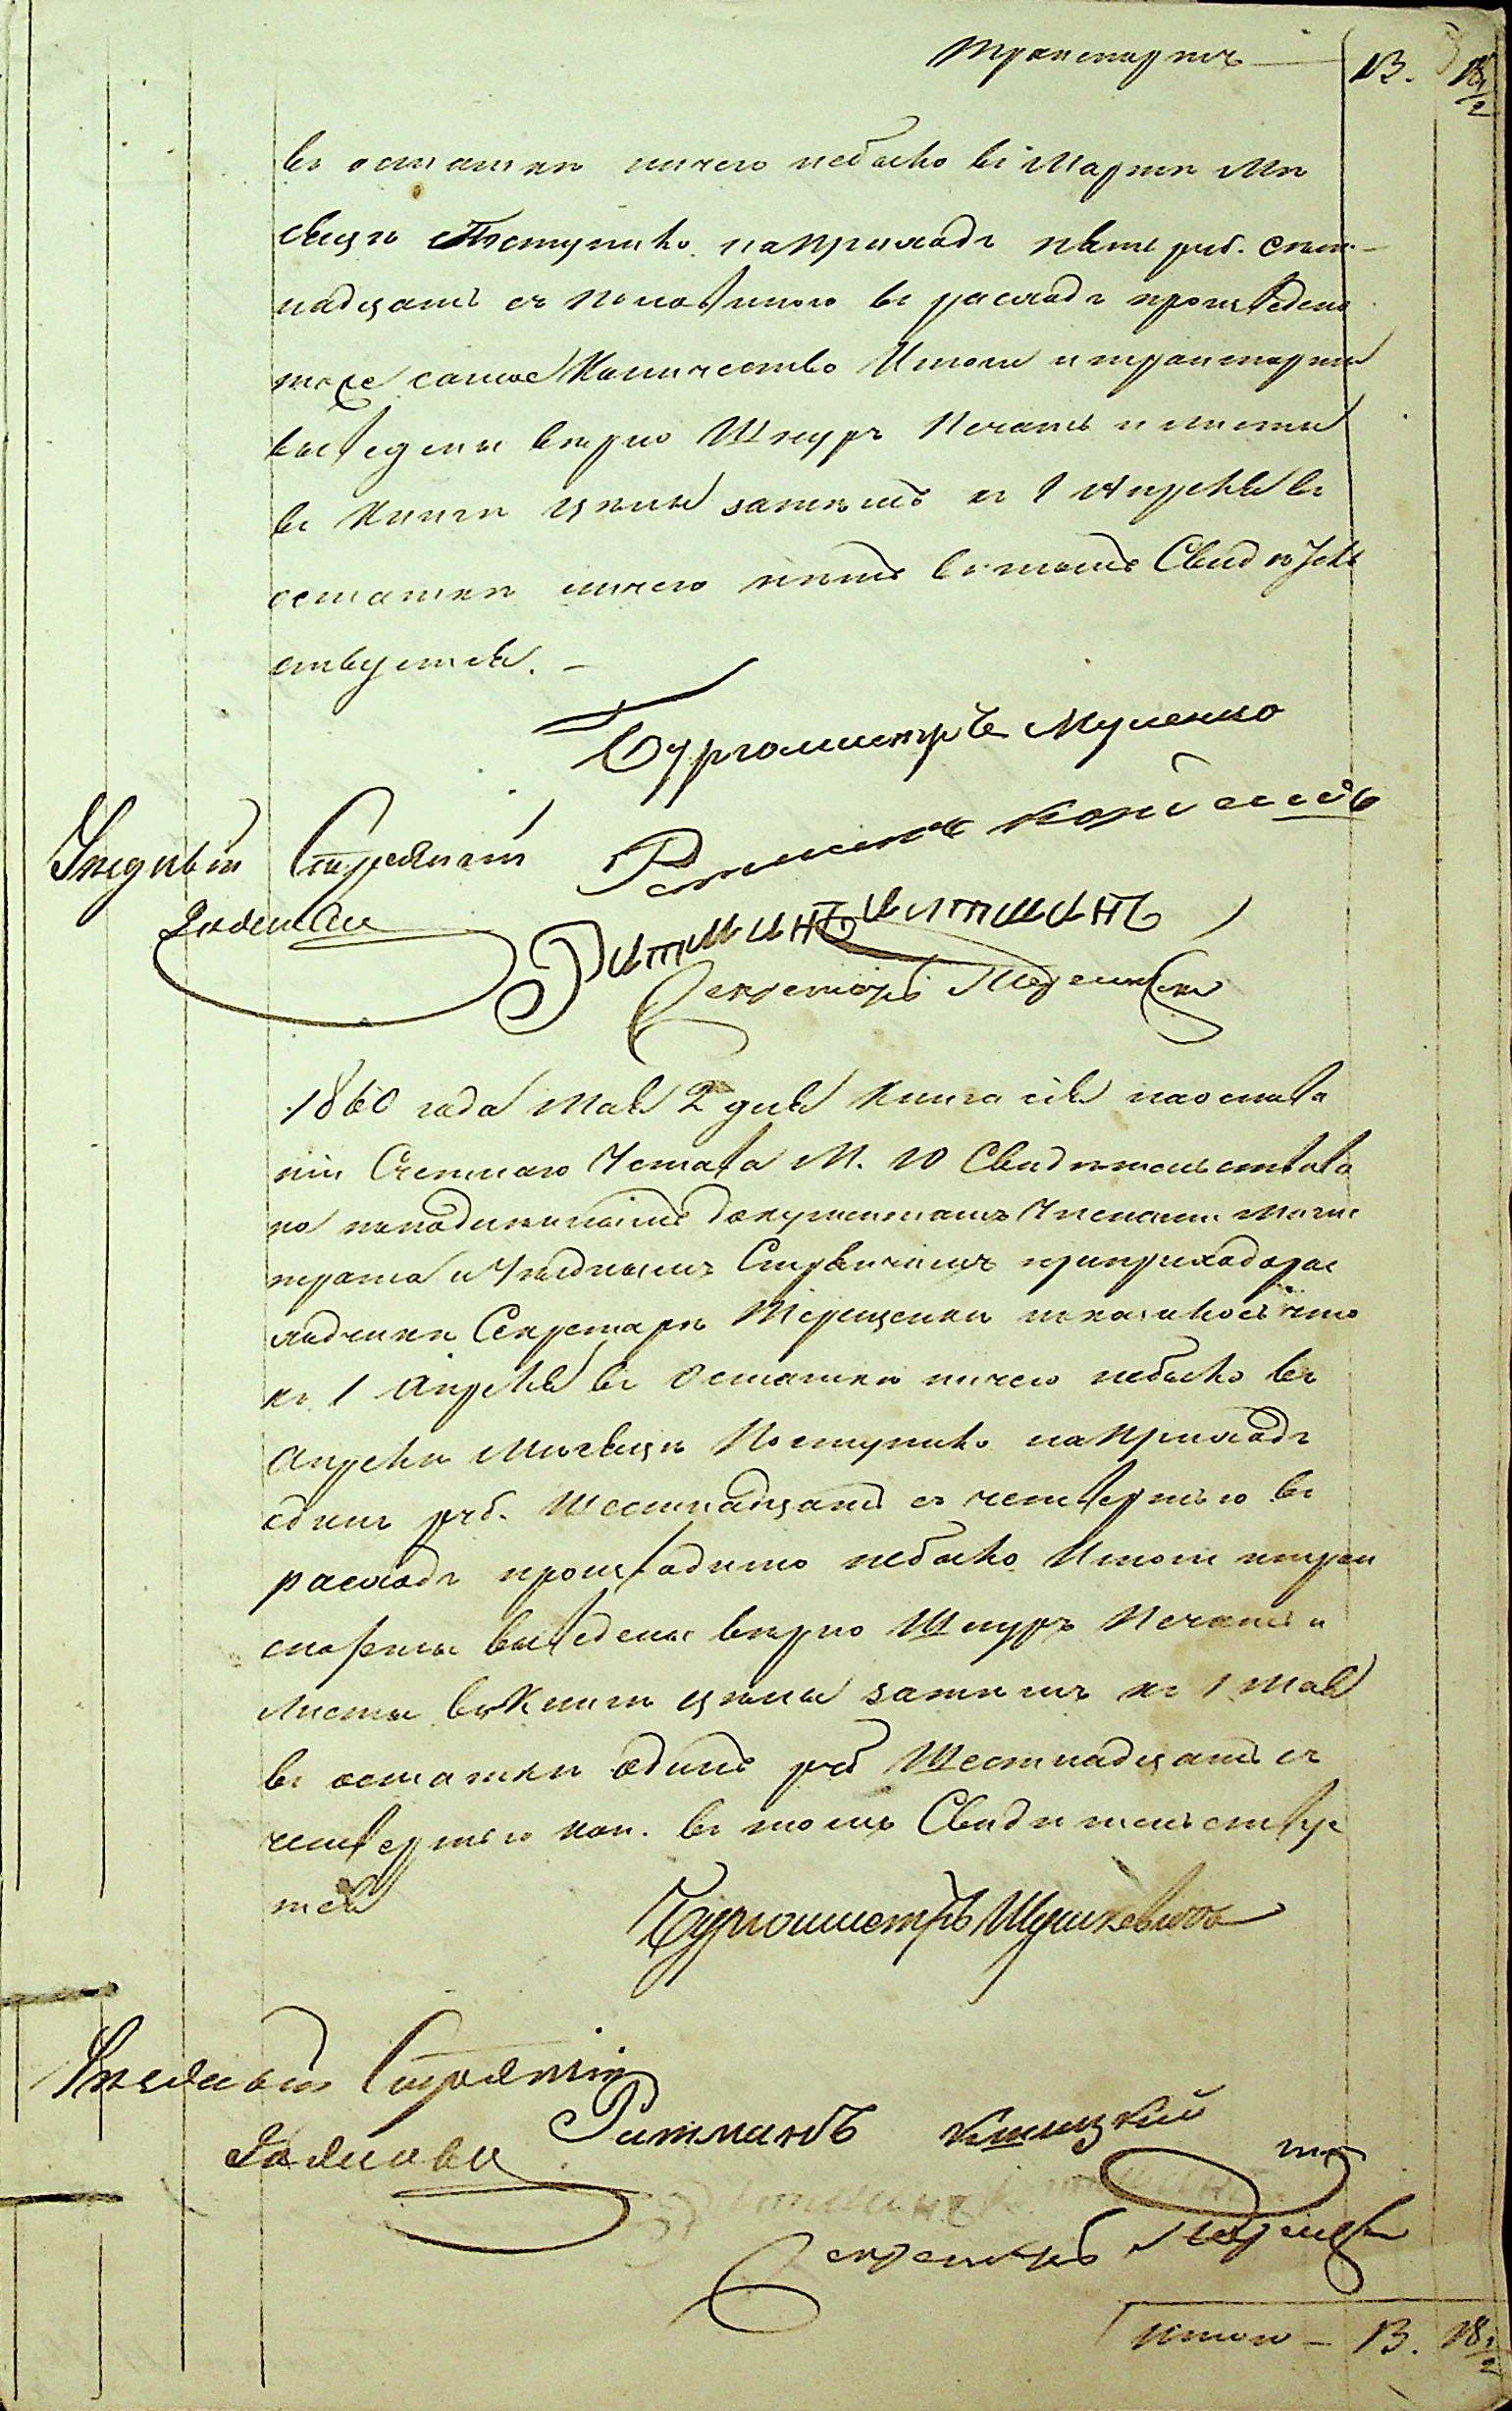 Транспортъ — 13. 18 1/2
въ остатке ничего небыло въ Марте Ме
сяце Поступило наприходъ пять руб. семь-
надцать съ половиною въ расходъ произведено
тоже самое Количество Итоги и транспорты
выведены верно Шнуръ Печать и листы
въ Книге целы затемъ к 1 Апреля въ
остатке ничего нетъ въ томъ Свидетель
ствуется. —
Бургомистръ
Уездный Стряпчій
Ратманъ
Секретарь Терещенко
1860 года Мая 2 дня Книга сія наоснова
ніи Счетнаго Устава М. Ю Свидетельствова
на понадлежащимъ документамъ Членами Магис
трата и Уезднымъ Стряпчимъ приприходорас
ходчике Секретаре Терещенке оказалось что
къ 1 Апреля въ Остатке ничего небыло въ
Апреле Месяце Поступило наПриходъ
одинъ руб. Шестнадцать съ четвертью въ
расходъ производимо небыло Итоги итран
спорты выведены верно Шнуръ Печать и
Листы въКниге целы затемъ къ 1 Мая
въ остатке одинъ руб Шестнадцать съ
четвертью коп. въ томъ Свидетельствуе
тся
Бургомистръ
Уездный Стряпчій
Ратманъ
Секретарь Терещенко
Итого — 13. 18 1/2